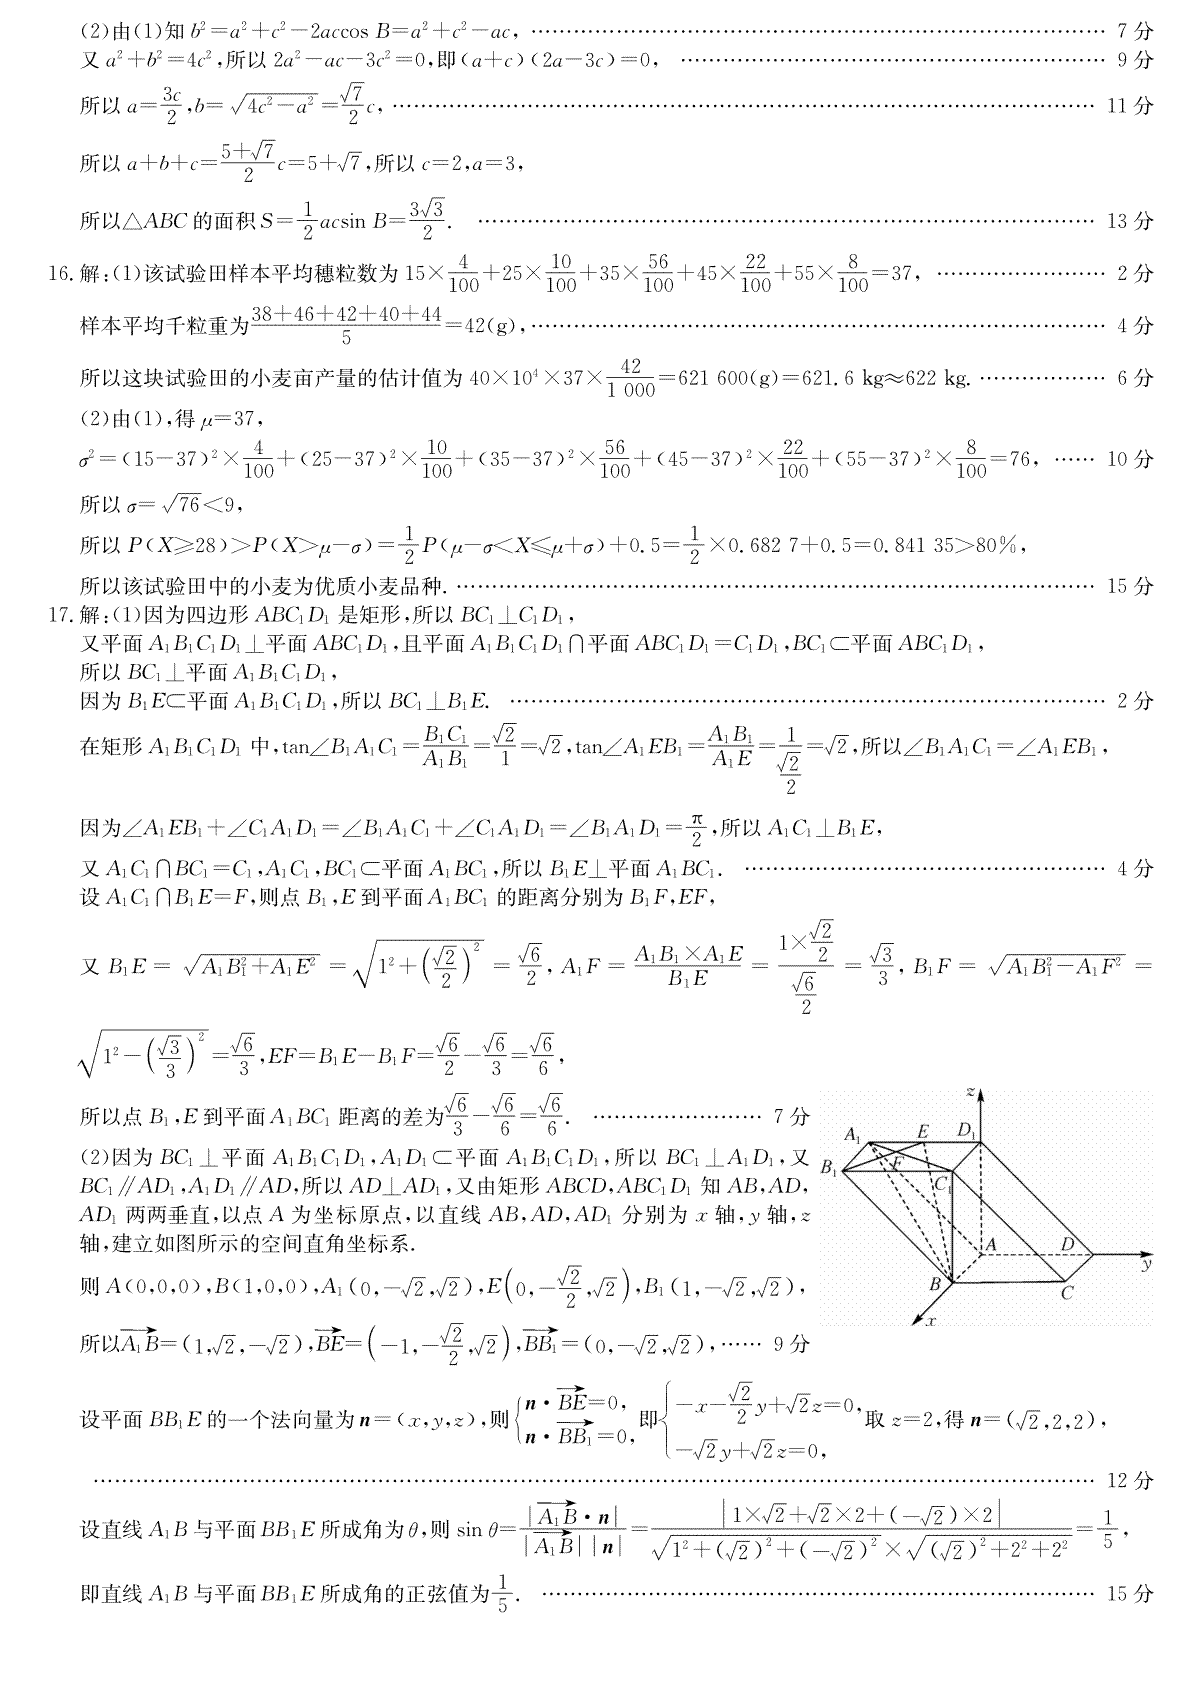 (2)由(1)知 b²=a²+c²-2accos B=a²+c²-ac, …… 7 分
又 a²+b²=4c²,所以 2a²-ac-3c²=0,即(a+c)(2a-3c)=0, …… 9 分
所以 a=3c/2,b=√(4c²-a²)=(√7/2)c, …… 11 分
所以 a+b+c=((5+√7)/2)c=5+√7,所以 c=2,a=3,
所以△ABC 的面积 S=1/2 acsin B=3√3/2. …… 13 分
16. 解:(1)该试验田样本平均穗粒数为 15×4/100+25×10/100+35×56/100+45×22/100+55×8/100=37, …… 2 分
样本平均千粒重为(38+46+42+40+44)/5=42(g), …… 4 分
所以这块试验田的小麦亩产量的估计值为 40×10⁴×37×42/1 000=621 600(g)=621.6 kg≈622 kg. …… 6 分
(2)由(1),得 μ=37,
σ²=(15-37)²×4/100+(25-37)²×10/100+(35-37)²×56/100+(45-37)²×22/100+(55-37)²×8/100=76, …… 10 分
所以 σ=√76<9,
所以 P(X≥28)>P(X>μ-σ)=1/2 P(μ-σ<X≤μ+σ)+0.5=1/2×0.682 7+0.5=0.841 35>80%,
所以该试验田中的小麦为优质小麦品种. …… 15 分
17. 解:(1)因为四边形 ABC₁D₁ 是矩形,所以 BC₁⊥C₁D₁,
又平面 A₁B₁C₁D₁⊥平面 ABC₁D₁,且平面 A₁B₁C₁D₁∩平面 ABC₁D₁=C₁D₁,BC₁⊂平面 ABC₁D₁,
所以 BC₁⊥平面 A₁B₁C₁D₁,
因为 B₁E⊂平面 A₁B₁C₁D₁,所以 BC₁⊥B₁E. …… 2 分
在矩形 A₁B₁C₁D₁ 中,tan∠B₁A₁C₁=B₁C₁/A₁B₁=√2/1=√2,tan∠A₁EB₁=A₁B₁/A₁E=1/(√2/2)=√2,所以∠B₁A₁C₁=∠A₁EB₁,
因为∠A₁EB₁+∠C₁A₁D₁=∠B₁A₁C₁+∠C₁A₁D₁=∠B₁A₁D₁=π/2,所以 A₁C₁⊥B₁E,
又 A₁C₁∩BC₁=C₁,A₁C₁,BC₁⊂平面 A₁BC₁,所以 B₁E⊥平面 A₁BC₁. …… 4 分
设 A₁C₁∩B₁E=F,则点 B₁,E 到平面 A₁BC₁ 的距离分别为 B₁F,EF,
又 B₁E=√(A₁B₁²+A₁E²)=√(1²+(√2/2)²)=√6/2,A₁F=(A₁B₁×A₁E)/B₁E=(1×√2/2)/(√6/2)=√3/3,B₁F=√(A₁B₁²-A₁F²)=
√(1²-(√3/3)²)=√6/3,EF=B₁E-B₁F=√6/2-√6/3=√6/6,
所以点 B₁,E 到平面 A₁BC₁ 距离的差为√6/3-√6/6=√6/6. …… 7 分
(2)因为 BC₁⊥平面 A₁B₁C₁D₁,A₁D₁⊂平面 A₁B₁C₁D₁,所以 BC₁⊥A₁D₁,又
BC₁∥AD₁,A₁D₁∥AD,所以 AD⊥AD₁,又由矩形 ABCD,ABC₁D₁ 知 AB,AD,
AD₁ 两两垂直,以点 A 为坐标原点,以直线 AB,AD,AD₁ 分别为 x 轴,y 轴,z
轴,建立如图所示的空间直角坐标系.
则 A(0,0,0),B(1,0,0),A₁(0,-√2,√2),E(0,-√2/2,√2),B₁(1,-√2,√2),
所以A₁B→=(1,√2,-√2),BE→=(-1,-√2/2,√2),BB₁→=(0,-√2,√2), …… 9 分
z
A₁ E D₁
B₁ F C₁
A D y
B C
x
设平面 BB₁E 的一个法向量为 n=(x,y,z),则{n·BE→=0, n·BB₁→=0,即{-x-(√2/2)y+√2z=0, -√2y+√2z=0,取 z=2,得 n=(√2,2,2),
…… 12 分
设直线 A₁B 与平面 BB₁E 所成角为 θ,则 sin θ=|A₁B→·n|/(|A₁B→||n|)=|1×√2+√2×2+(-√2)×2|/(√(1²+(√2)²+(-√2)²)×√((√2)²+2²+2²))=1/5,
即直线 A₁B 与平面 BB₁E 所成角的正弦值为1/5. …… 15 分